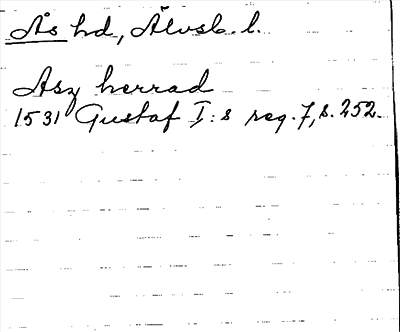 Ås hd, Älvsb. l.
Asz herrad
1531 Gustaf I:s reg. 7, s. 252.